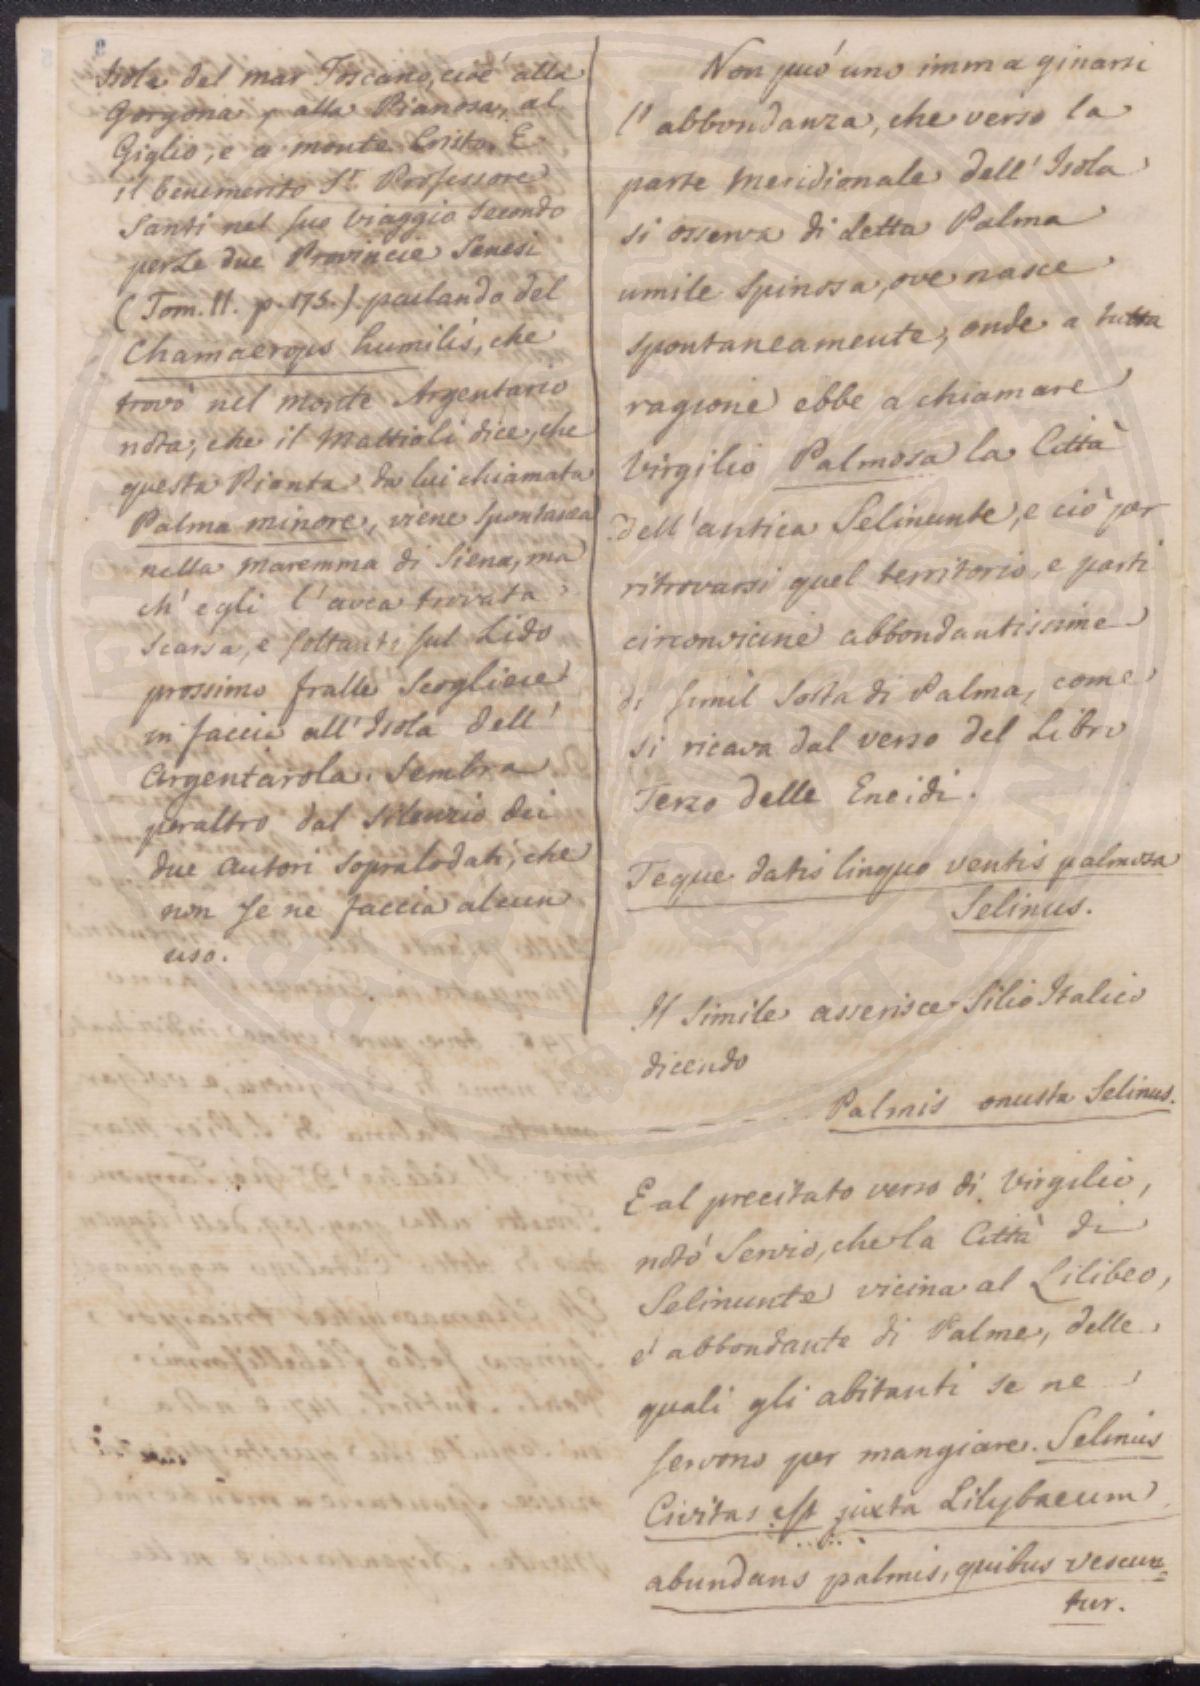 Isola del mar Toscano, cioè alla
Gorgona, alla Pianosa, al
Giglio, e a monte Cristo. E
il benemerito Sr. Professore
Santi nel suo viaggio secondo
per le due Provincie Senesi
(Tom. II. p. 175.) parlando del
Chamaerops humilis, che
trovò nel monte Argentario
nota, che il Mattioli dice, che
questa Pianta da lui chiamata
Palma minore, viene spontanea
nella maremma di Siena, ma
ch' egli l' avea trovata
scarsa, e soltanto sul Lido
prossimo fralle Scogliere
in faccia all' Isola dell'
Argentarola. Sembra
peraltro dal silenzio dei
due autori sopralodati, che
non se ne faccia alcun
uso.
Non può uno immaginarsi
l' abbondanza, che verso la
parte Meridionale dell' Isola
si osserva di detta Palma
umile spinosa, ove nasce
spontaneamente, onde a tutta
ragione ebbe a chiamare
Virgilio Palmosa la Città
dell' antica Selinunte, e ciò per
ritrovarsi quel territorio, e parti
circonvicine abbondantissime
di simil sorta di Palma, come
si ricava dal verso del Libro
Terzo delle Eneidi.
Teque datis linquo ventis palmosa
Selinus.
Il simile asserisce Silio Italico
dicendo
_ _ _ _ . . Palmis onusta Selinus.
E al precitato verso di Virgilio,
notò Servio, che la Città di
Selinunte vicina al Lilibeo,
è abbondante di Palme, delle
quali gli abitanti se ne
servono per mangiare. Selinus
Civitas est juxta Lilybaeum
abundans palmis, quibus vescun=
tur.